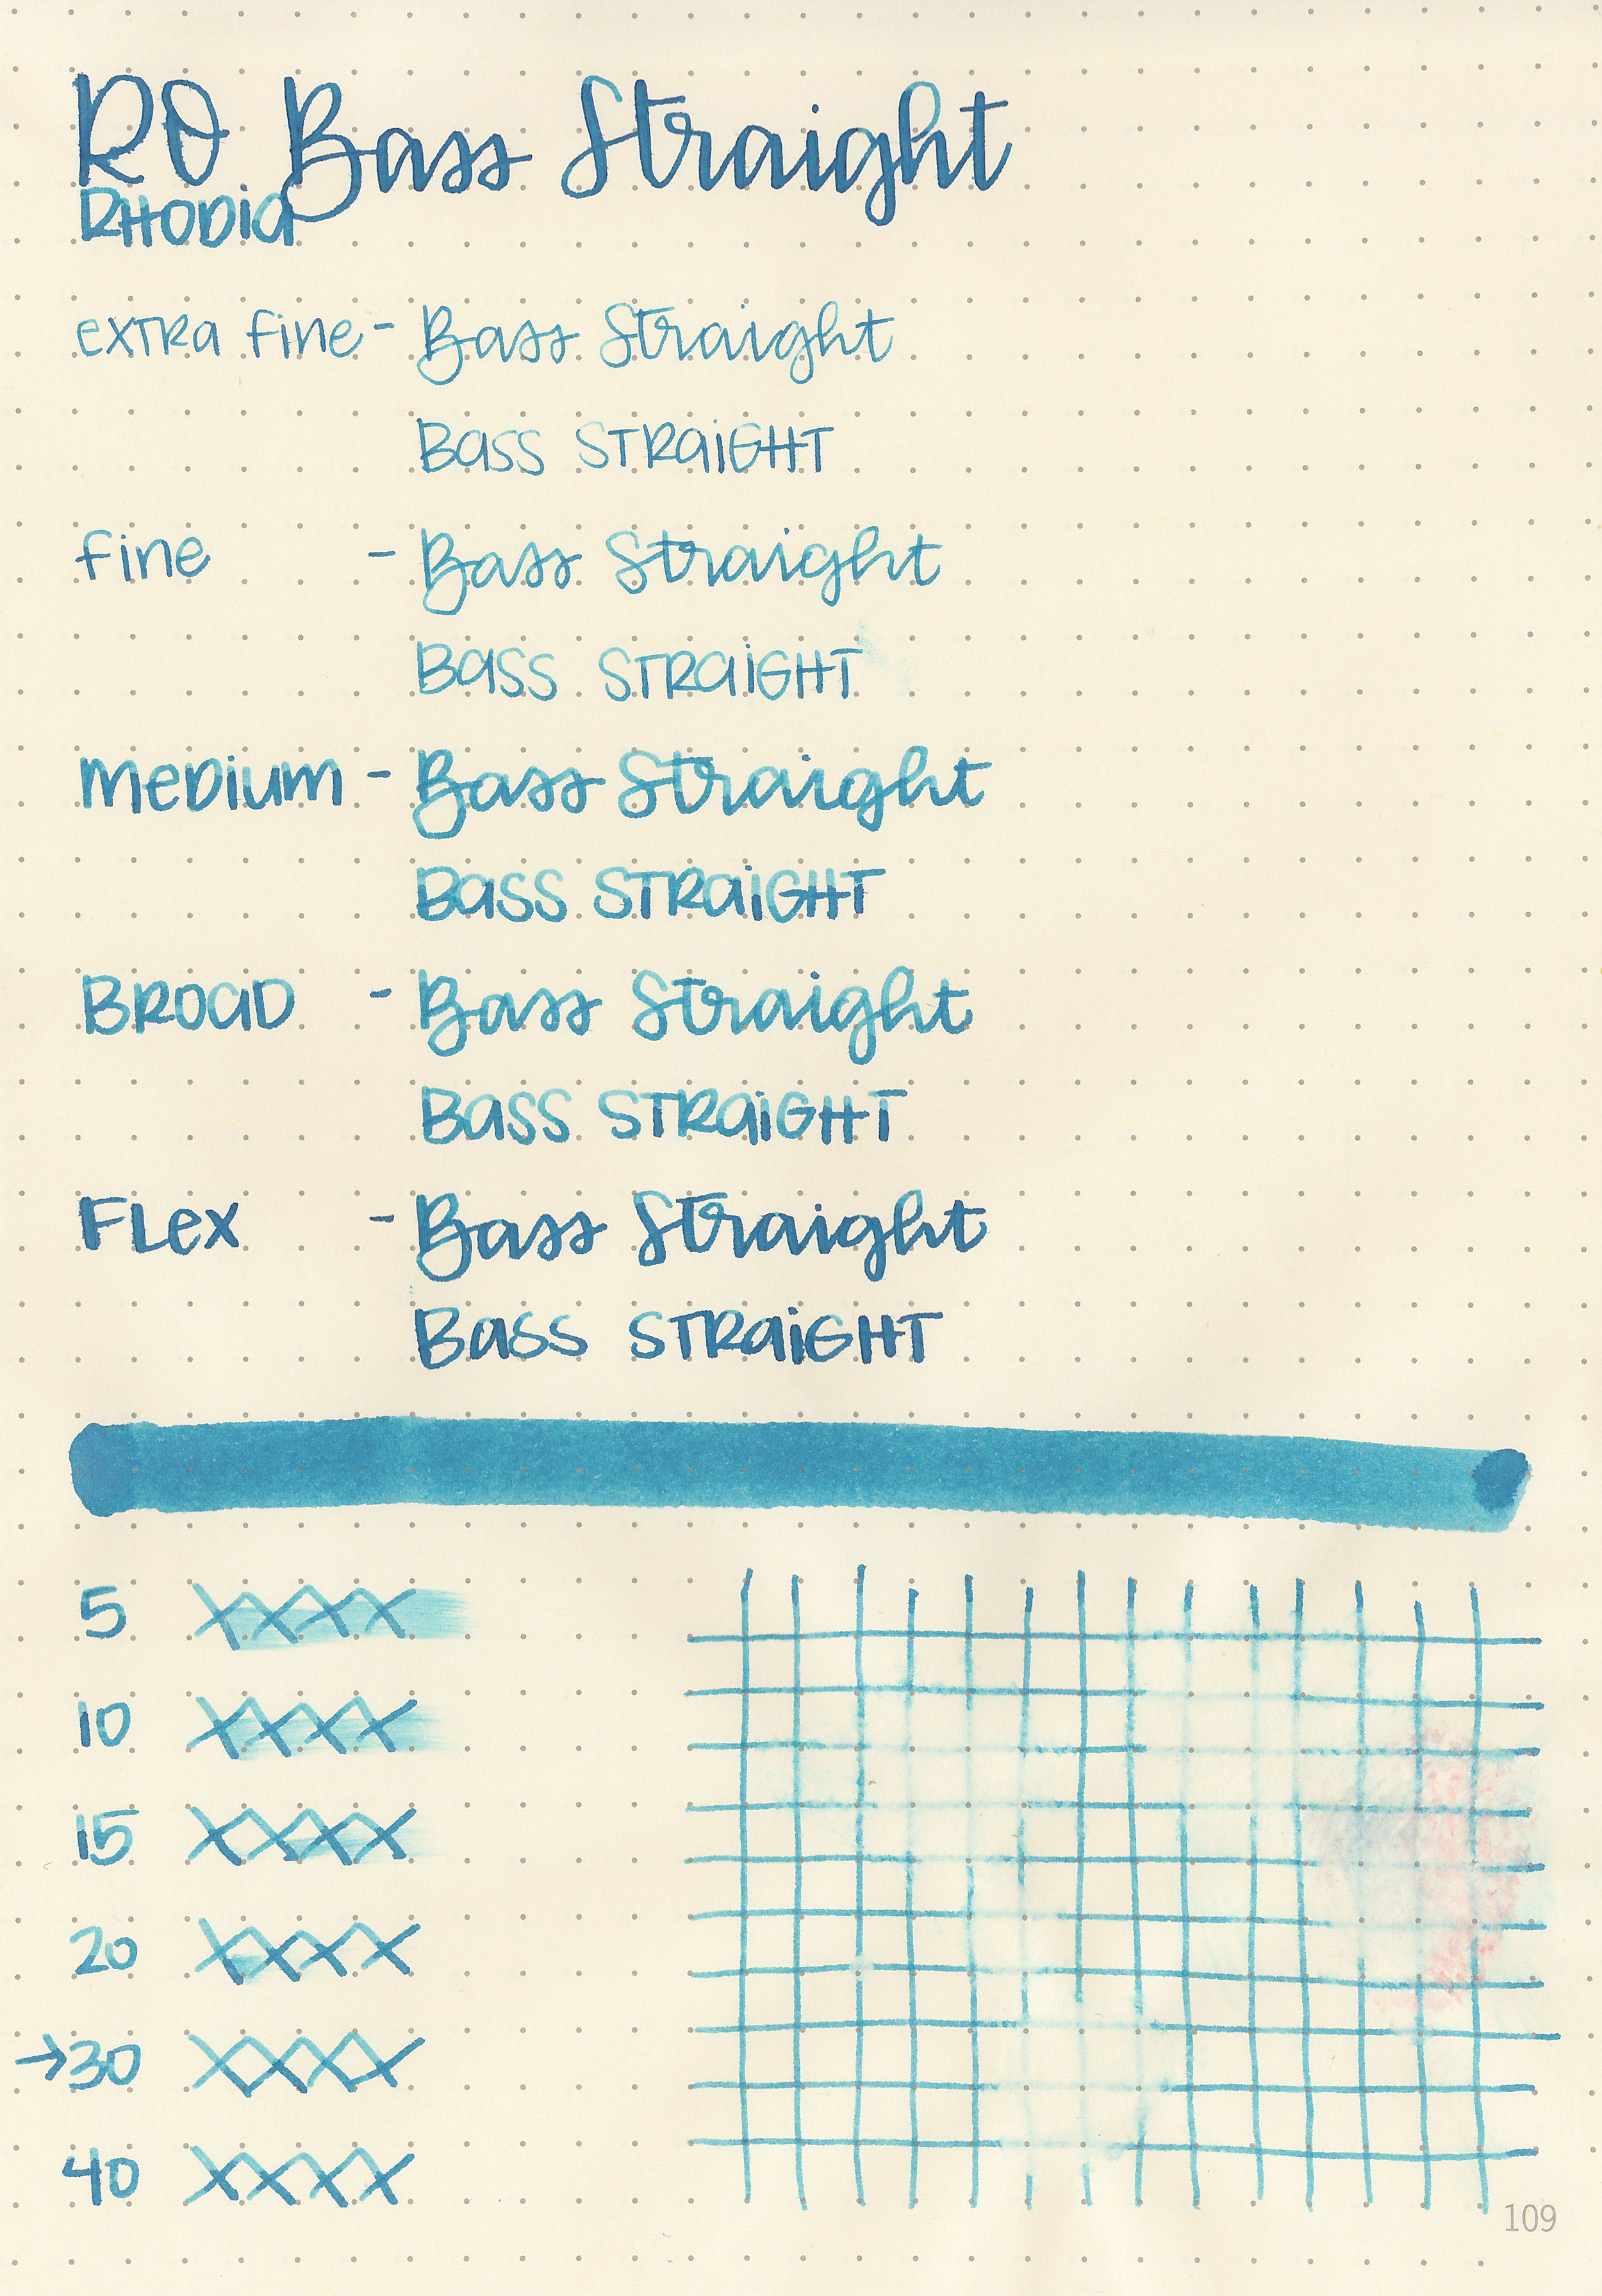 RO Bass Straight
RHODia
exTRa fine - Bass Straight
Bass STRaiGHT
fine - Bass Straight
Bass STRaiGHT
meDium - Bass Straight
Bass STRaiGHT
BROaD - Bass Straight
Bass STRaiGHT
FLex - Bass Straight
Bass STRaiGHT
5 XXXX
10 XXXX
15 XXXX
20 XXXX
→30 XXXX
40 XXXX
109